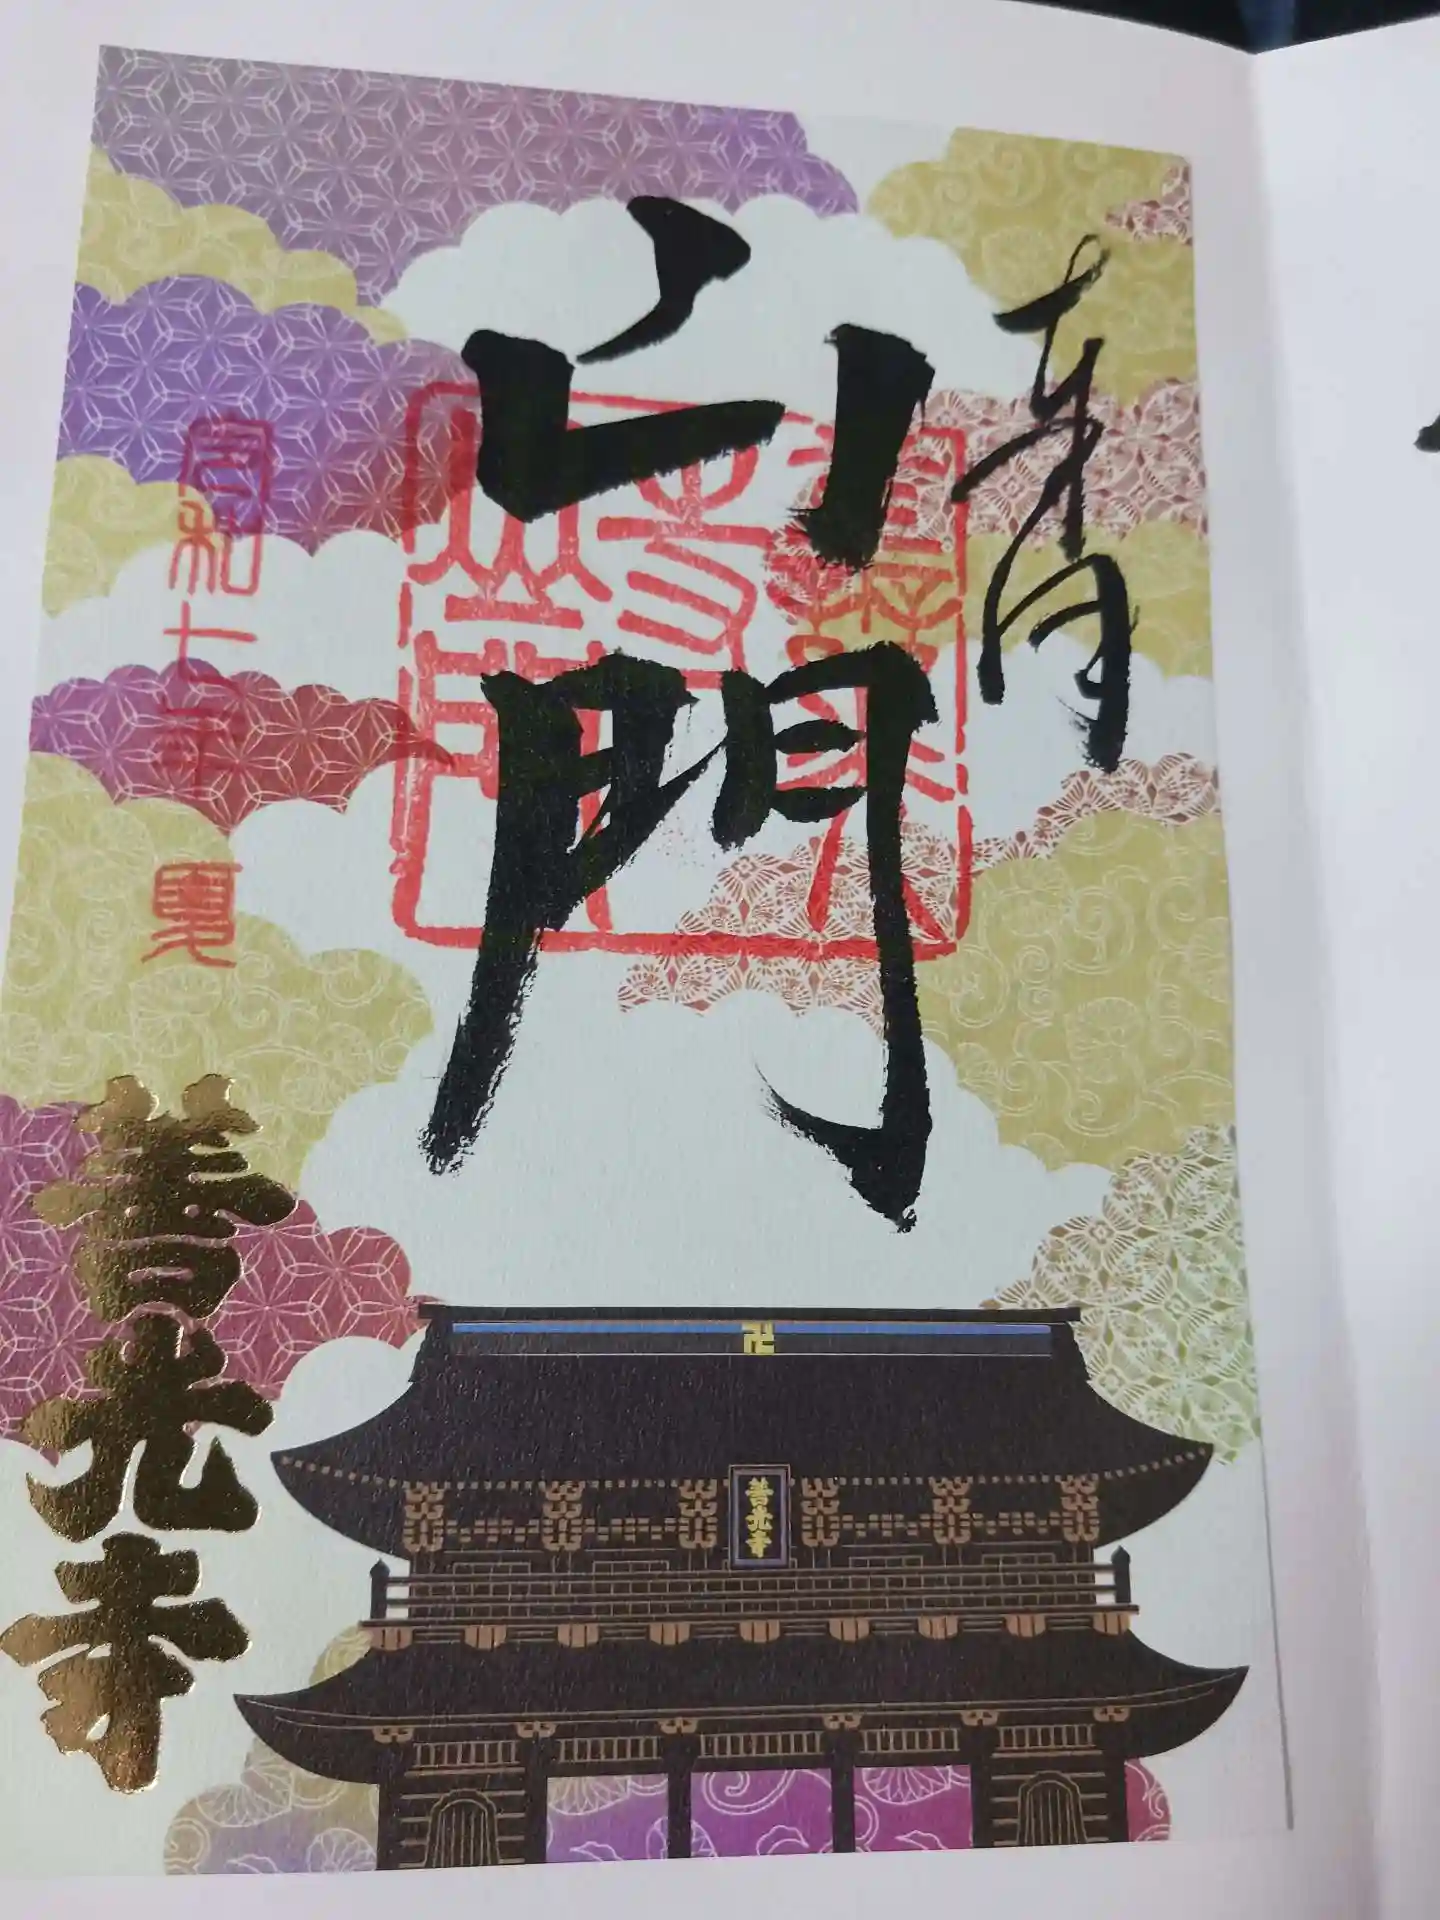 青
山門
令和七年 夏
善光寺
善光寺